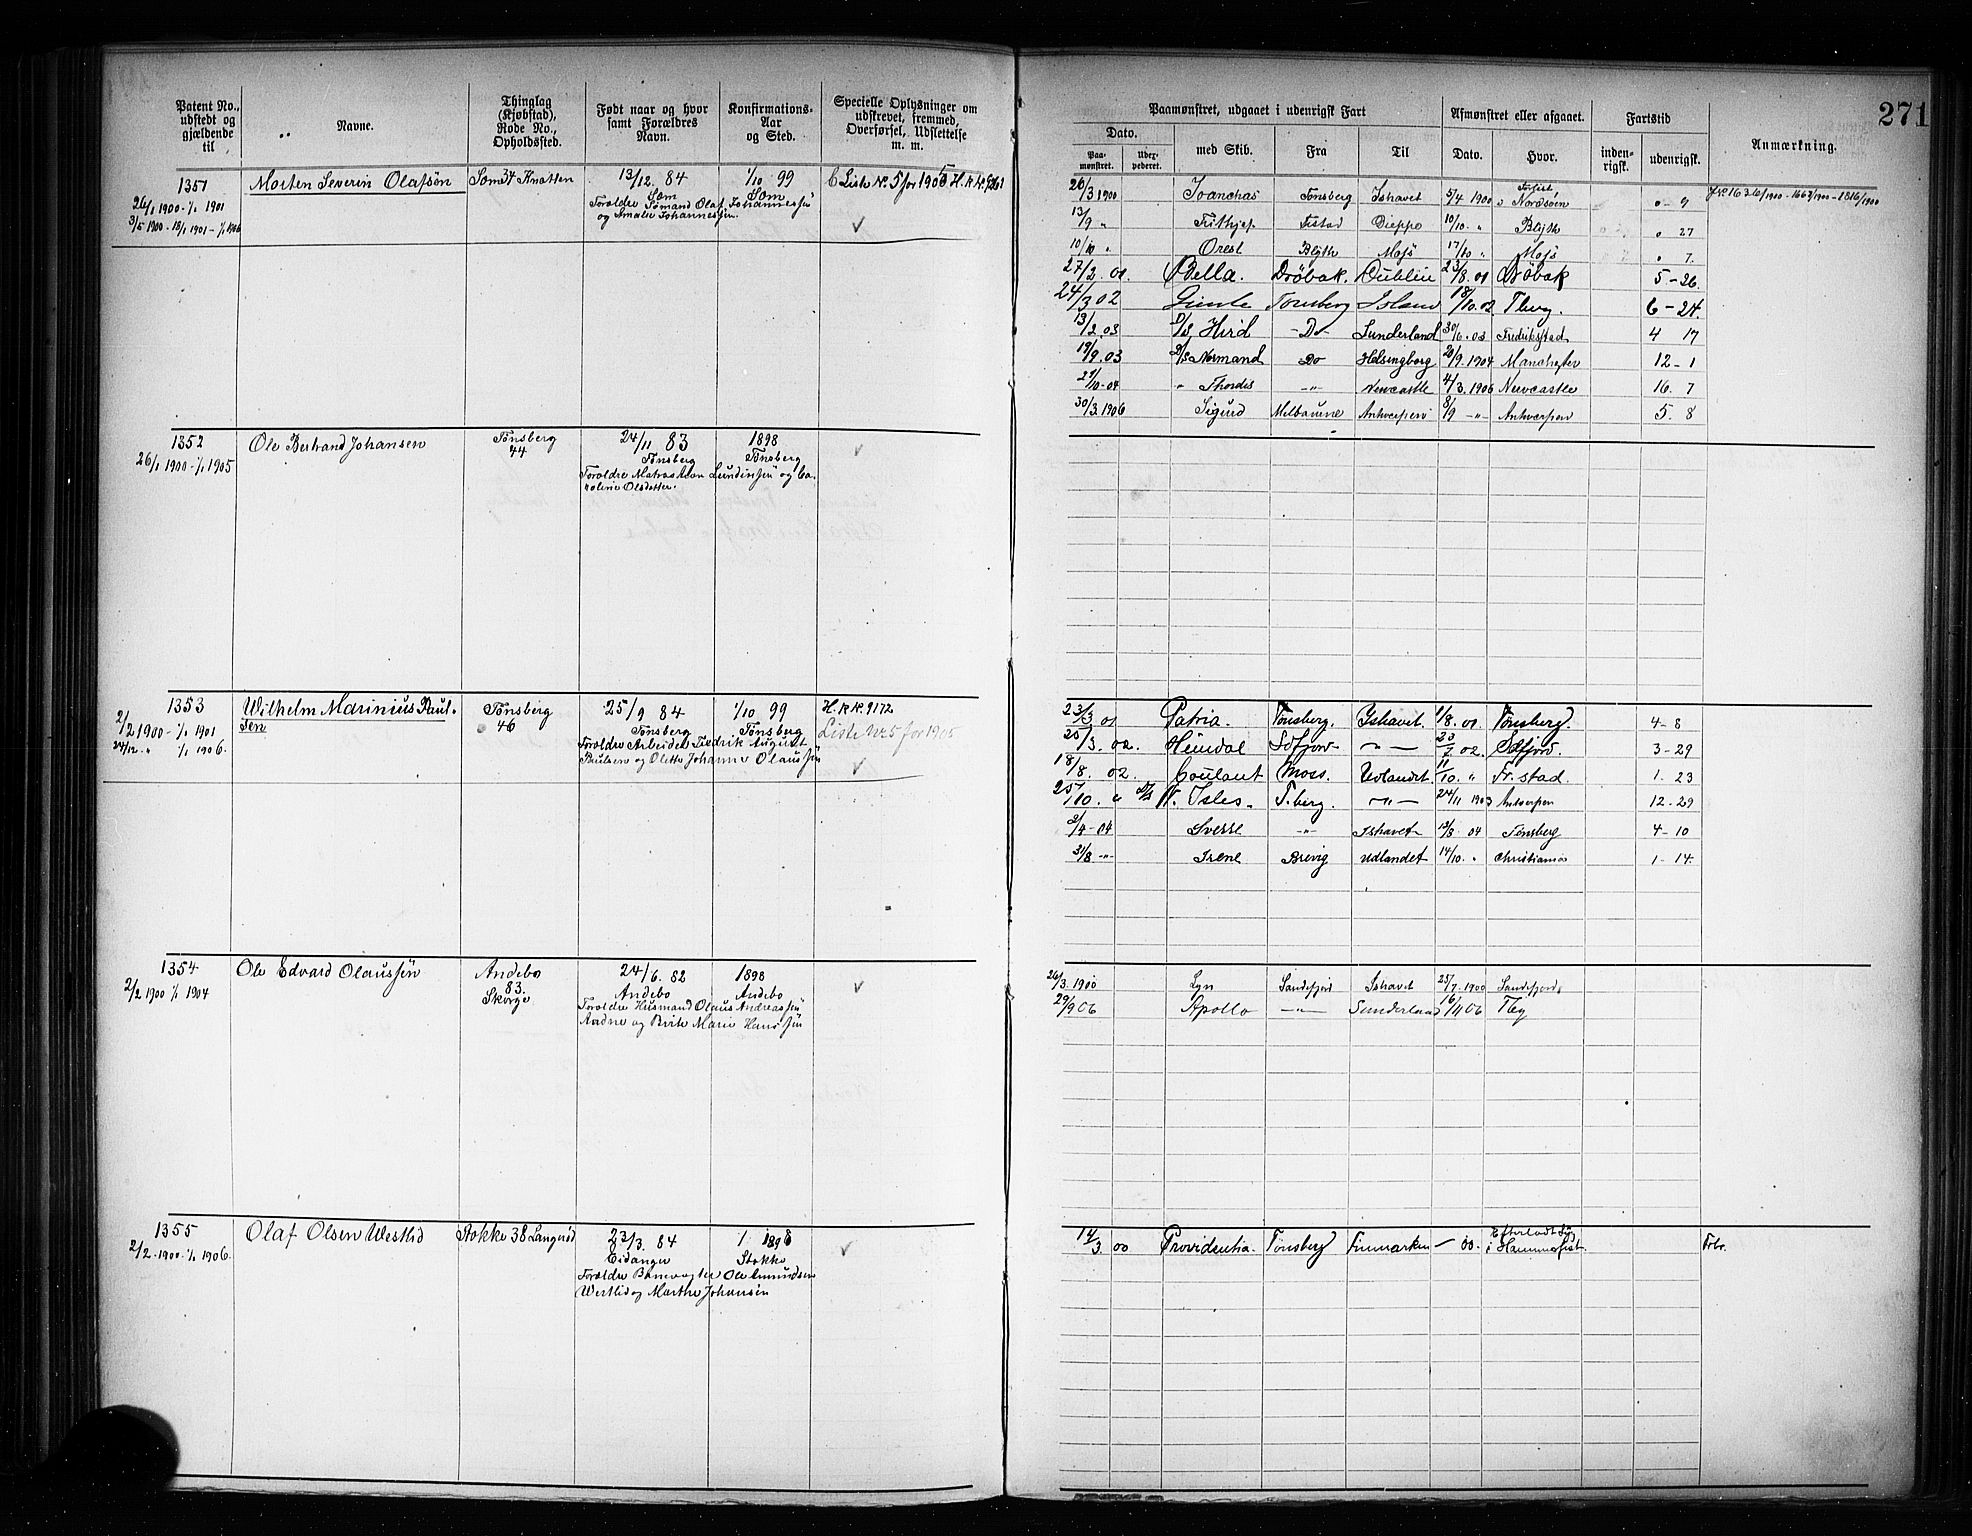 271
Patent No., udstedt og gjældende til
Navne.
Thinglag (Kjøbstad), Rode No., Opholdssted.
Født naar og hvor samt Forældres Navn.
Konfirmations-Aar og Sted.
Specielle Oplysninger om udskrevet, fremmed, Overførsel, Udslettelse m. m.
Paamønstret, udgaaet i udenrigsk Fart
Afmønstret eller afgaaet.
Fartstid
Anmærkning.
Dato.
Paa-mønstret.
med Skib.
Fra
Til
Dato.
Hvor.
inden-rigsk.
udenrigsk.
1351
26/1 1900 - 1/1 1901
Morten Severin Olafsön
Sem 34 Knatten
13/12. 84
Sem
1/10 99
Sem
Forældre Sömand Olaf Johannessen
og Amalie Johannessen.
C Liste No. 5 for 1905
26/3 1900 Tönsberg Ishavet 5/4 1900 Nordsöen
13/9 " Frithjof Dieppe 10/10. " Blyth " 27
10/10 " Orest Blyth Mojs 17/10 " Mojs " 7.
27/2. 01. Bella. Dröbak. Dublin 23/8. 01 Dröbak 5 - 26
24/3 02 Gimle Tönsberg Island 18/10. 02 Tberg. 6 - 24.
13/2. 03 D/S Hird - Do - Sunderland 30/6. 03 Fredrikstad 4 17
19/9. 03 D/S Normand Do Helsingborg 20/9. 1904 Manchester 12 - 1
29/10 - 04 " Thordis - " - Newcastle 4/3. 1906 Newcastle 16. 7
30/3. 1906 Sigurd Melbourne Antwerpen 8/9 - " - Antwerpen 5. 8
1352
26/1 1900 - 1/1 1905
Ole Bertrand Johansen
Tönsberg
44
24/11 83
Tönsberg
1898
Tönsberg
1353
2/2 1900 - 1/1 1901
24/12. " 1/1 1906.
Wilhelm Marinius Paulsen
Tönsberg
46
25/9 84
Tönsberg
1/10 99
Tönsberg
Forældre Arbeider Fredrik August
Paulsen og Olette Johanne Olaussen
H. R. No. 9172
Liste No. 5 for 1905
23/3 01 Patria. Tönsberg. Ishavet. 1/8. 01 Tönsberg. 4 - 8
25/3. 02. Heimdal Sdfjord - " - 23/7. 02. Sdfjord. 3 - 29
18/8. 02. Coulant Moss. Udlandet. 11/10. " Fr.stad. 1. 23
25/10. " D/S N. Isles. T.berg. - " - 24/11 1903 Antwerpen 12 - 29
2/4 - 04 Sverre - " - Ishavet 12/8. 04 Tönsberg 4 - 10
31/8 - " - Irene Brevig Udlandet 14/10. " Christiania 1 - 14
1354
2/2 1900 1/1 1904
Ole Edvard Olaussen
Andebo
83.
Skorge
24/6. 82
Andebo
1898
Andebo
Forældre Husmand Olaus Andreassen
26/3. 1900 Lyn Sandefjord Ishavet 25/7. 1900 Sandefjord.
29/9 06 Apollo - " - Sunderland 16/11 06
1355
2/2. 1900. 1/1. 1906.
Olaf Olsen Westlid
Stokke 38 Langeröd
23/3. 84
Eidanger
1898
Stokke
Forældre Banevogter Ole Amundsen
Westlid og Marthe Johansen
14/3. 00 Providentia. Tönsberg Finmarken - 00. Efterladt syg
i Hammerfest.